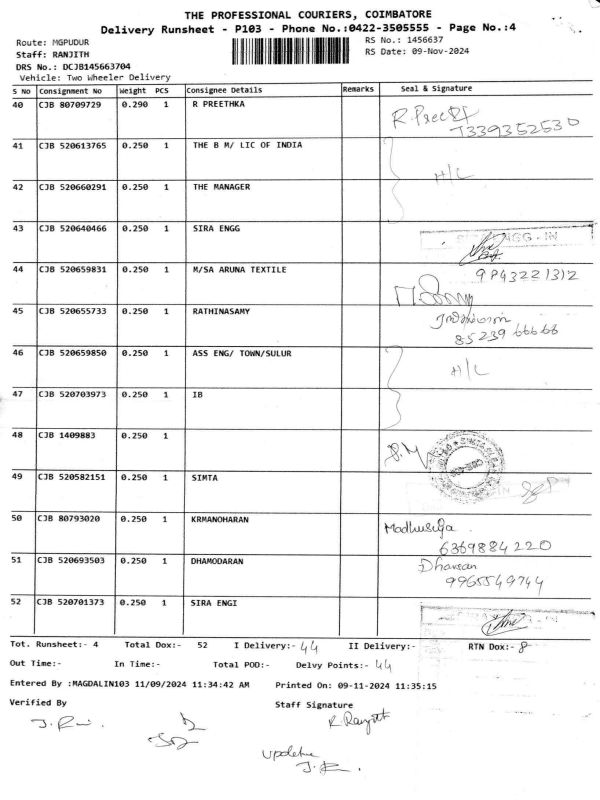 THE PROFESSIONAL COURIERS, COIMBATORE
Delivery Runsheet - P103 - Phone No.:0422-3505555 - Page No.:4
Route: MGPUDUR
RS No.: 1456637
Staff: RANJITH
RS Date: 09-Nov-2024
DRS No.: DCJB145663704
Vehicle: Two Wheeler Delivery
S No Consignment No Weight PCS Consignee Details Remarks Seal & Signature
40 CJB 80709729 0.290 1 R PREETHKA
7339352530
41 CJB 520613765 0.250 1 THE B M/ LIC OF INDIA
H/L
42 CJB 520660291 0.250 1 THE MANAGER
43 CJB 520640466 0.250 1 SIRA ENGG
44 CJB 520659831 0.250 1 M/SA ARUNA TEXTILE
9843221312
45 CJB 520655733 0.250 1 RATHINASAMY
85239 66666
46 CJB 520659850 0.250 1 ASS ENG/ TOWN/SULUR
H/L
47 CJB 520703973 0.250 1 IB
48 CJB 1409883 0.250 1
49 CJB 520582151 0.250 1 SIMTA
50 CJB 80793020 0.250 1 KRMANOHARAN
6369884220
51 CJB 520693503 0.250 1 DHAMODARAN
Dharsan
9965549744
52 CJB 520701373 0.250 1 SIRA ENGI
Tot. Runsheet:- 4 Total Dox:- 52 I Delivery:- 44 II Delivery:- RTN Dox:- 8
Out Time:- In Time:- Total POD:- Delvy Points:- 44
Entered By :MAGDALIN103 11/09/2024 11:34:42 AM Printed On: 09-11-2024 11:35:15
Verified By Staff Signature
R. Ranjith